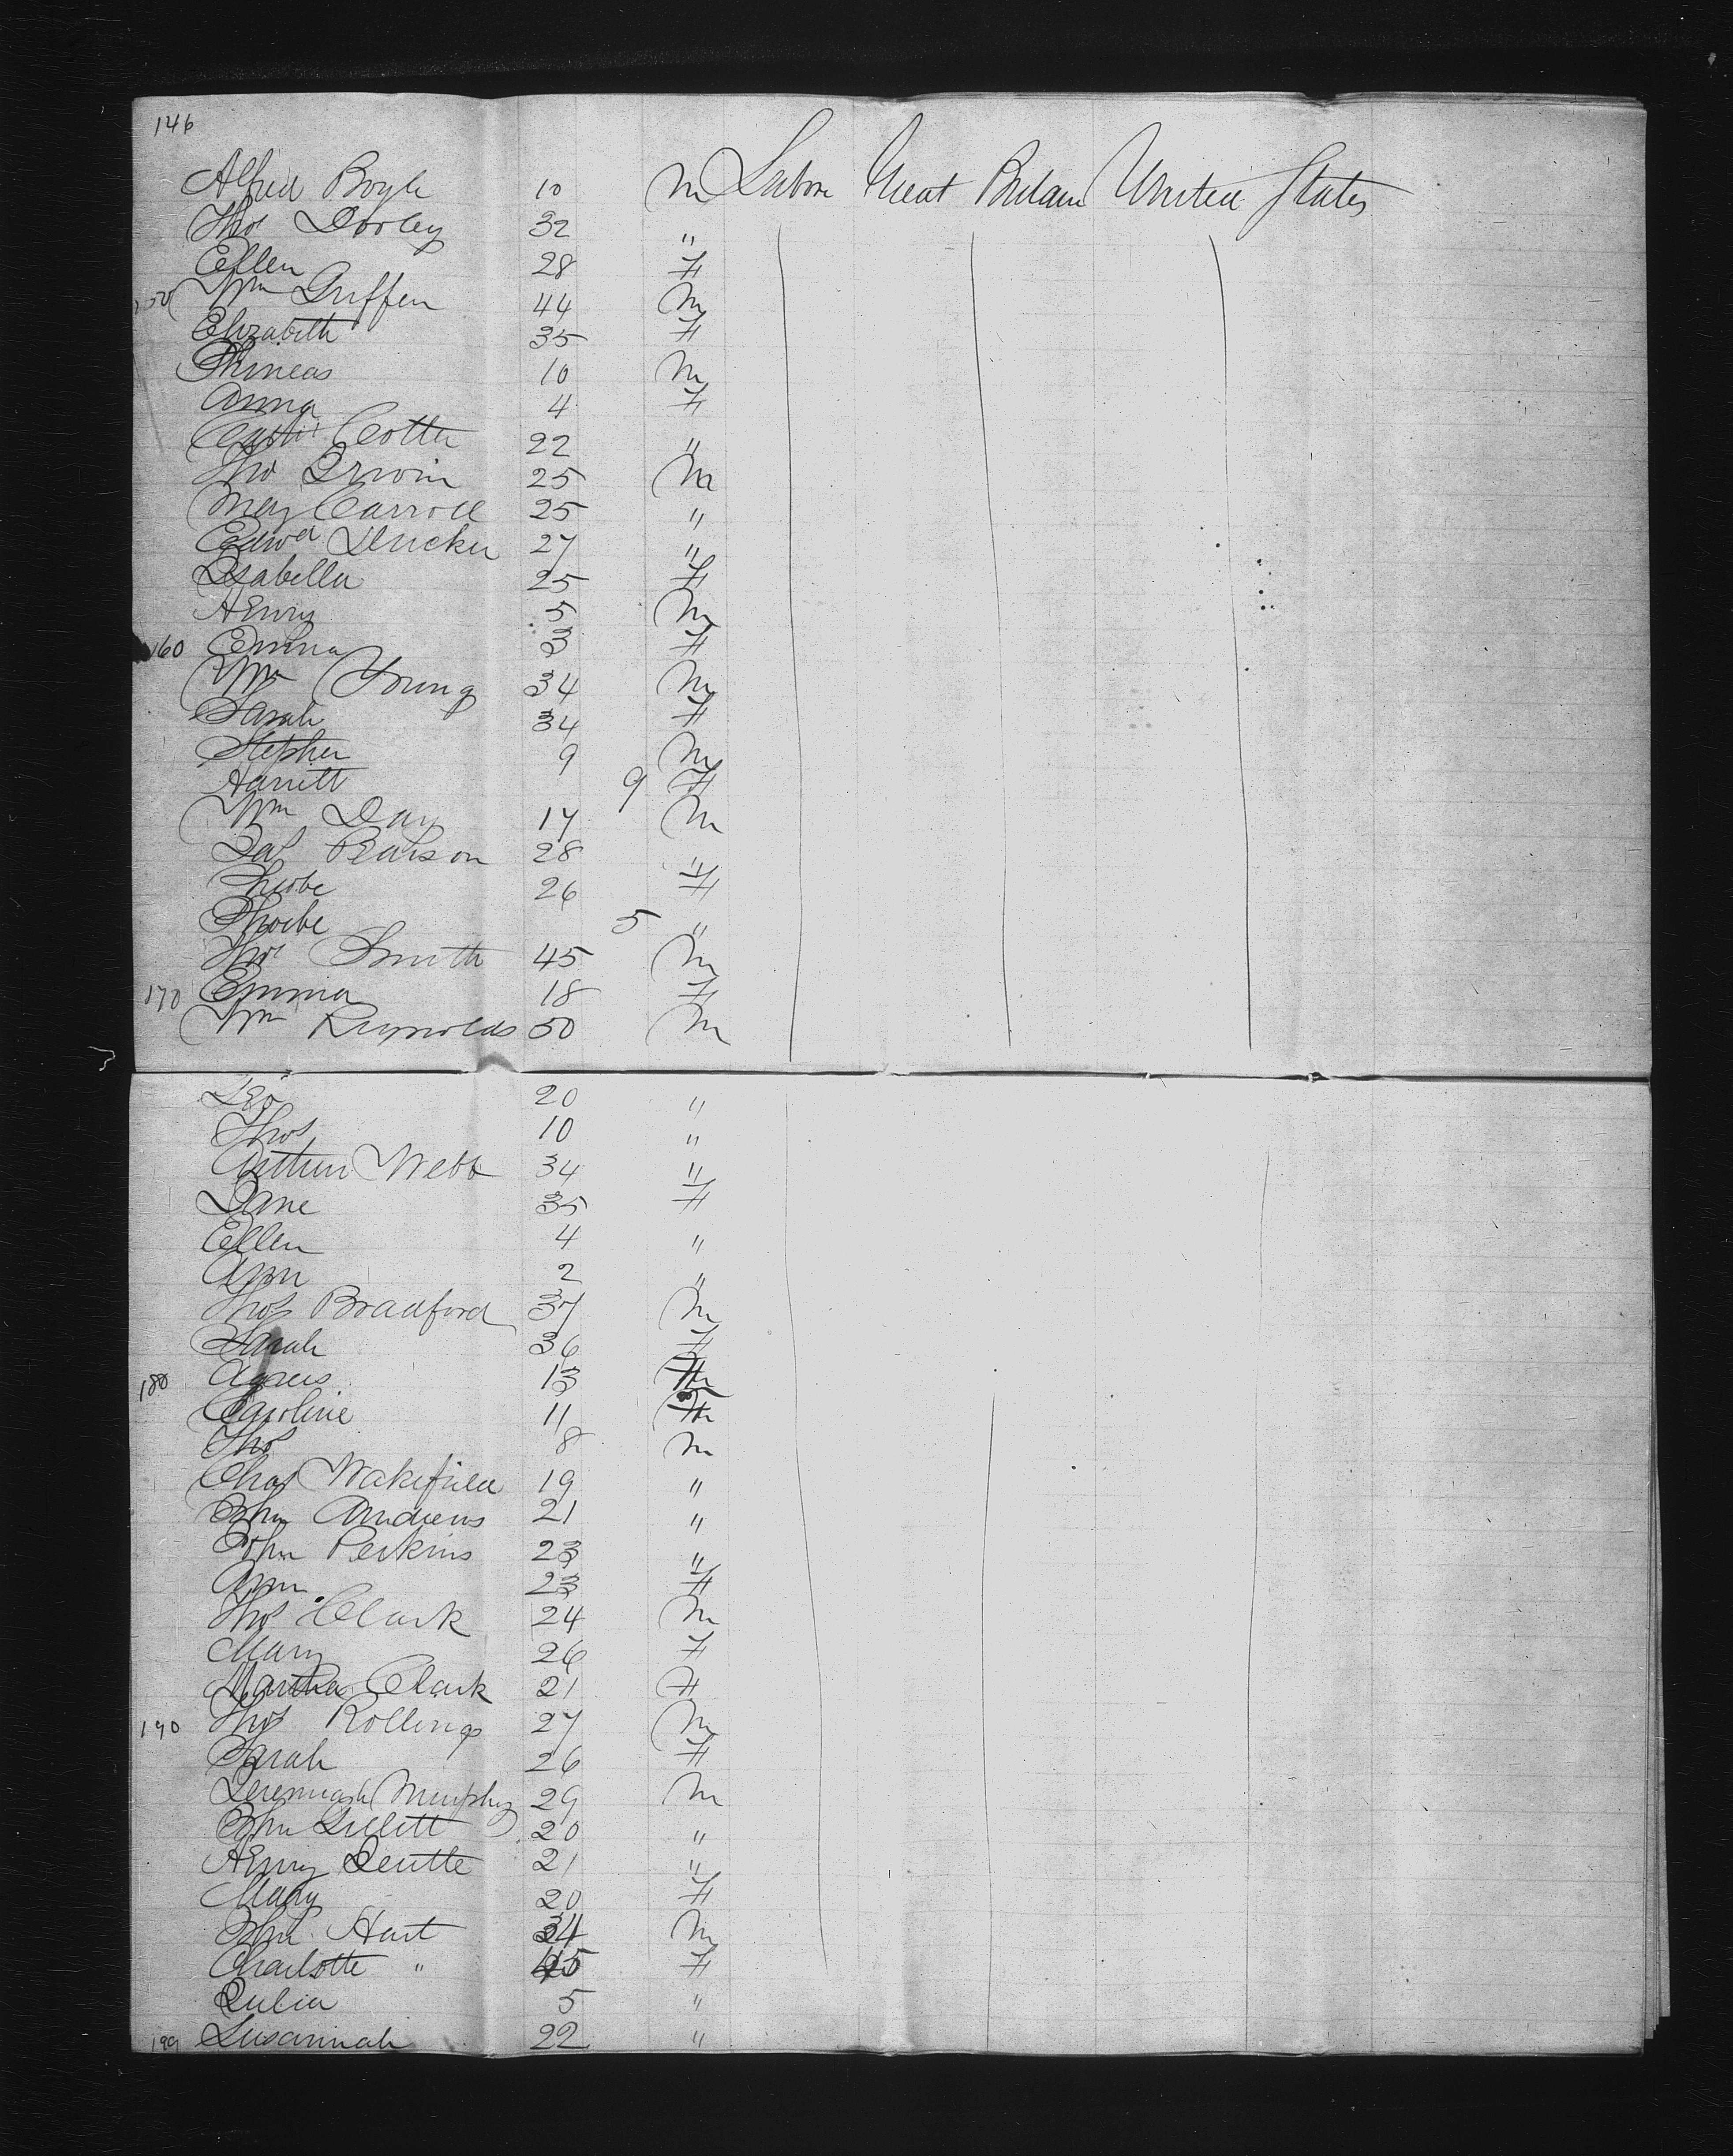 146
Alfred Boyle 10 M Labor Great Britain United States
Thos Dooley 32 "
Ellen 28 F
150 Wm Griffen 44 M
Elizabeth 35 F
Phineas 10 M
Anna 4 F
Cotter 22 "
Thos Irwin 25 M
May Carroll 25 "
Edwd 27 "
Isabella 25 F
Henry 5 M
160 Emma 3 F
Wm Young 34 M
Sarah 34 F
Stephen 9 M
Harriett 9 F
Wm Day 17 M
Jas Pearson 28 "
Phoebe 26 F
Phoebe 5 "
Thos Smith 45 M
170 Emma 18 F
Wm Reynolds 50 M
Geo 20 "
Thos 10 "
Arthur Webb 34 "
Jane 35 F
Ellen 4 "
Ann 2 "
Thos Bradford 37 M
Sarah 36 F
180 Agnes 13 F
Caroline 11 F
Thos 8 M
Chas Wakefield 19 "
John Andrews 21 "
John Perkins 23 "
Ann 23 F
Thos Clark 24 M
Mary 26 F
Martha Clark 21 F
190 Thos Rollings 27 M
Sarah 26 F
Jeremiah Murphy 29 M
John Gillett 20 "
Henry 21 "
Mary 20 F
John Hart 34 M
Charlotte " 45 F
Julia 5 "
199 Susannah 22 "